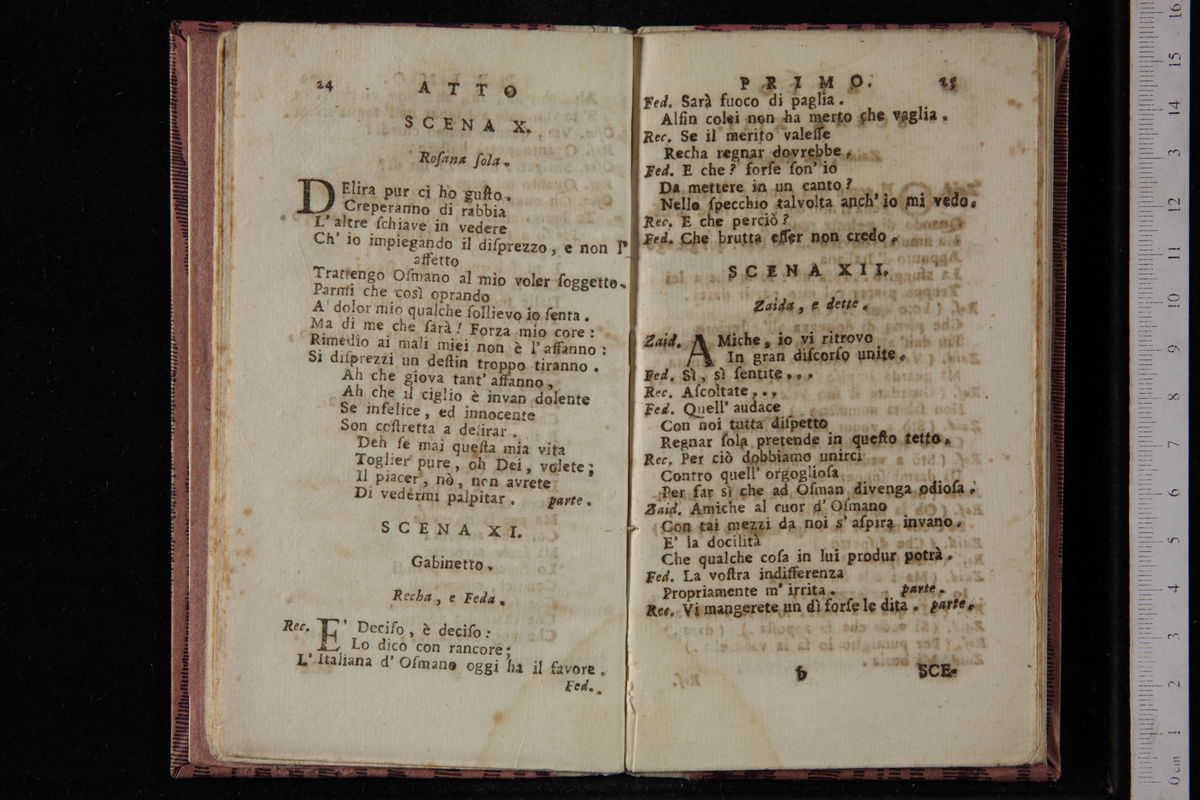 24 ATTO
SCENA X.
Roſana ſola.
DElira pur ci ho guſto.
Creperanno di rabbia
L' altre ſchiave in vedere
Ch' io impiegando il diſprezzo, e non l'
affetto
Trattengo Oſmano al mio voler ſoggetto.
Parmi che così oprando
A' dolor mio qualche ſollievo io ſenta.
Ma di me che ſarà! Forza mio core:
Rimedio ai mali miei non è l'affanno:
Si diſprezzi un deſtin troppo tiranno.
Ah che giova tant' affanno,
Ah che il ciglio è invan dolente
Se infelice, ed innocente
Son coſtretta a delirar.
Deh ſe mai queſta mia vita
Toglier pure, oh Dei, volete;
Il piacer, nò, non avrete
Di vedermi palpitar. parte.
SCENA XI.
Gabinetto.
Recha, e Feda.
Rec. E' Deciſo, è deciſo:
Lo dico con rancore;
L' Italiana d' Oſmano oggi ha il favore.
Fed.
PRIMO. 25
Fed. Sarà fuoco di paglia.
Alfin colei non ha merto che vaglia.
Rec. Se il merito valeſſe
Recha regnar dovrebbe.
Fed. E che? forſe ſon' io
Da mettere in un canto?
Nello ſpecchio talvolta anch' io mi vedo.
Rec. E che perciò?
Fed. Che brutta eſſer non credo.
SCENA XII.
Zaida, e dette.
Zaid. AMiche, io vi ritrovo
In gran diſcorſo unite.
Fed. Sì, sì ſentite...
Rec. Aſcoltate...
Fed. Quell' audace
Con noi tutta diſpetto
Regnar ſola pretende in queſto tetto.
Rec. Per ciò dobbiamo unirci
Contro quell' orgoglioſa
Per far sì che ad Oſman divenga odioſa.
Zaid. Amiche al cuor d' Oſmano
Con tai mezzi da noi s' aſpira invano.
E' la docilità
Che qualche coſa in lui produr potrà.
Fed. La voſtra indifferenza
Propriamente m' irrita. parte.
Rec. Vi mangerete un dì forſe le dita. parte.
b SCE-
0 cm 1 2 3 4 5 6 7 8 9 10 11 12 13 14 15 16